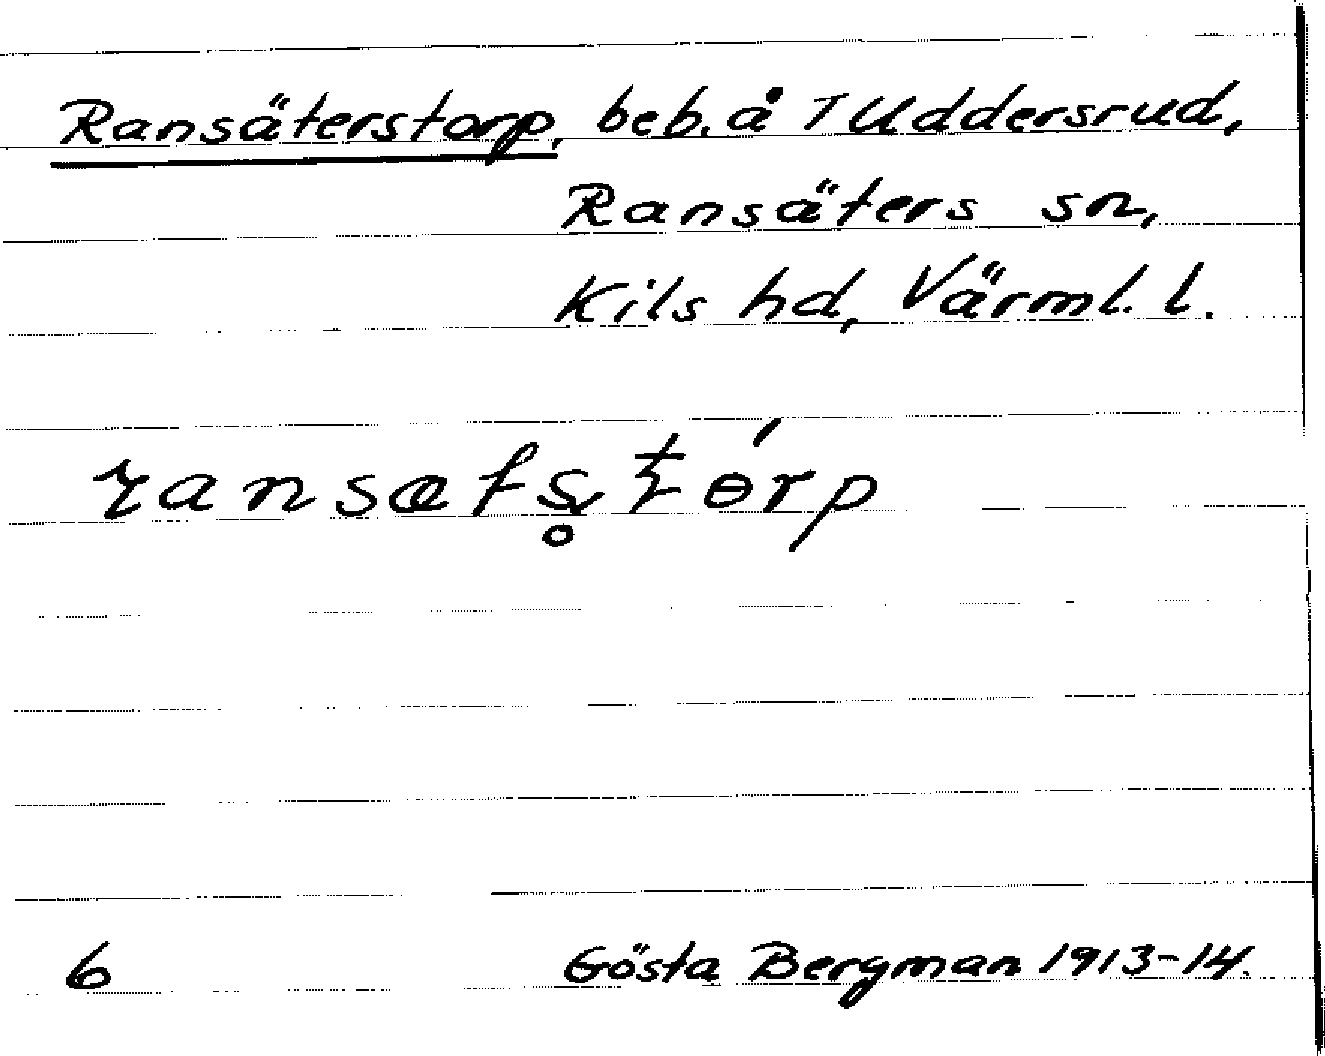 Ransäterstorp, beb. å Tuddersrud,
Ransäters sn,
Kils hd, Värml. l.
6
Gösta Bergman 1913-14.